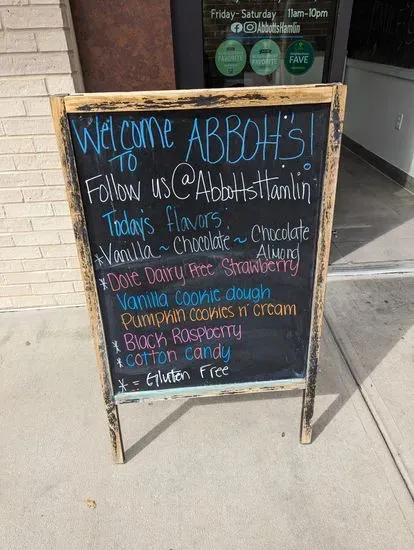 Friday-Saturday 11am-10pm
@AbbottsHamlin
FAVORITE
FAVORITE
FAVE
Welcome TO ABBOTT'S!
Follow us @AbbottsHamlin
Today's flavors
*Vanilla ~ Chocolate ~ Chocolate Almond
*Dole Dairy Free Strawberry
Vanilla cookie dough
Pumpkin cookies n' cream
*Black Raspberry
*cotton candy
* = Gluten Free